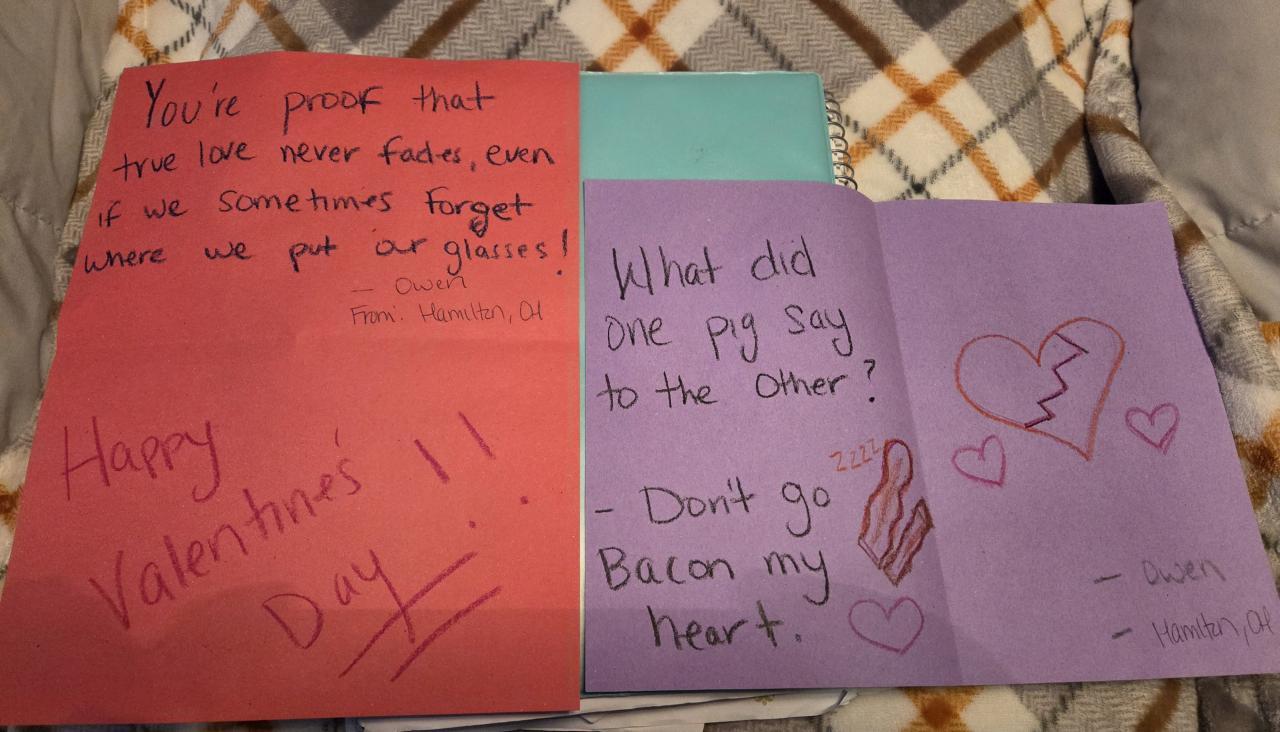 You're proof that
true love never fades, even
if we sometimes forget
where we put our glasses!
- Owen
From: Hamilton, OH
Happy
Valentine's
Day!!
What did
one pig say
to the Other?
zzzz
- Don't go
Bacon my
heart.
- Owen
- Hamilton, OH